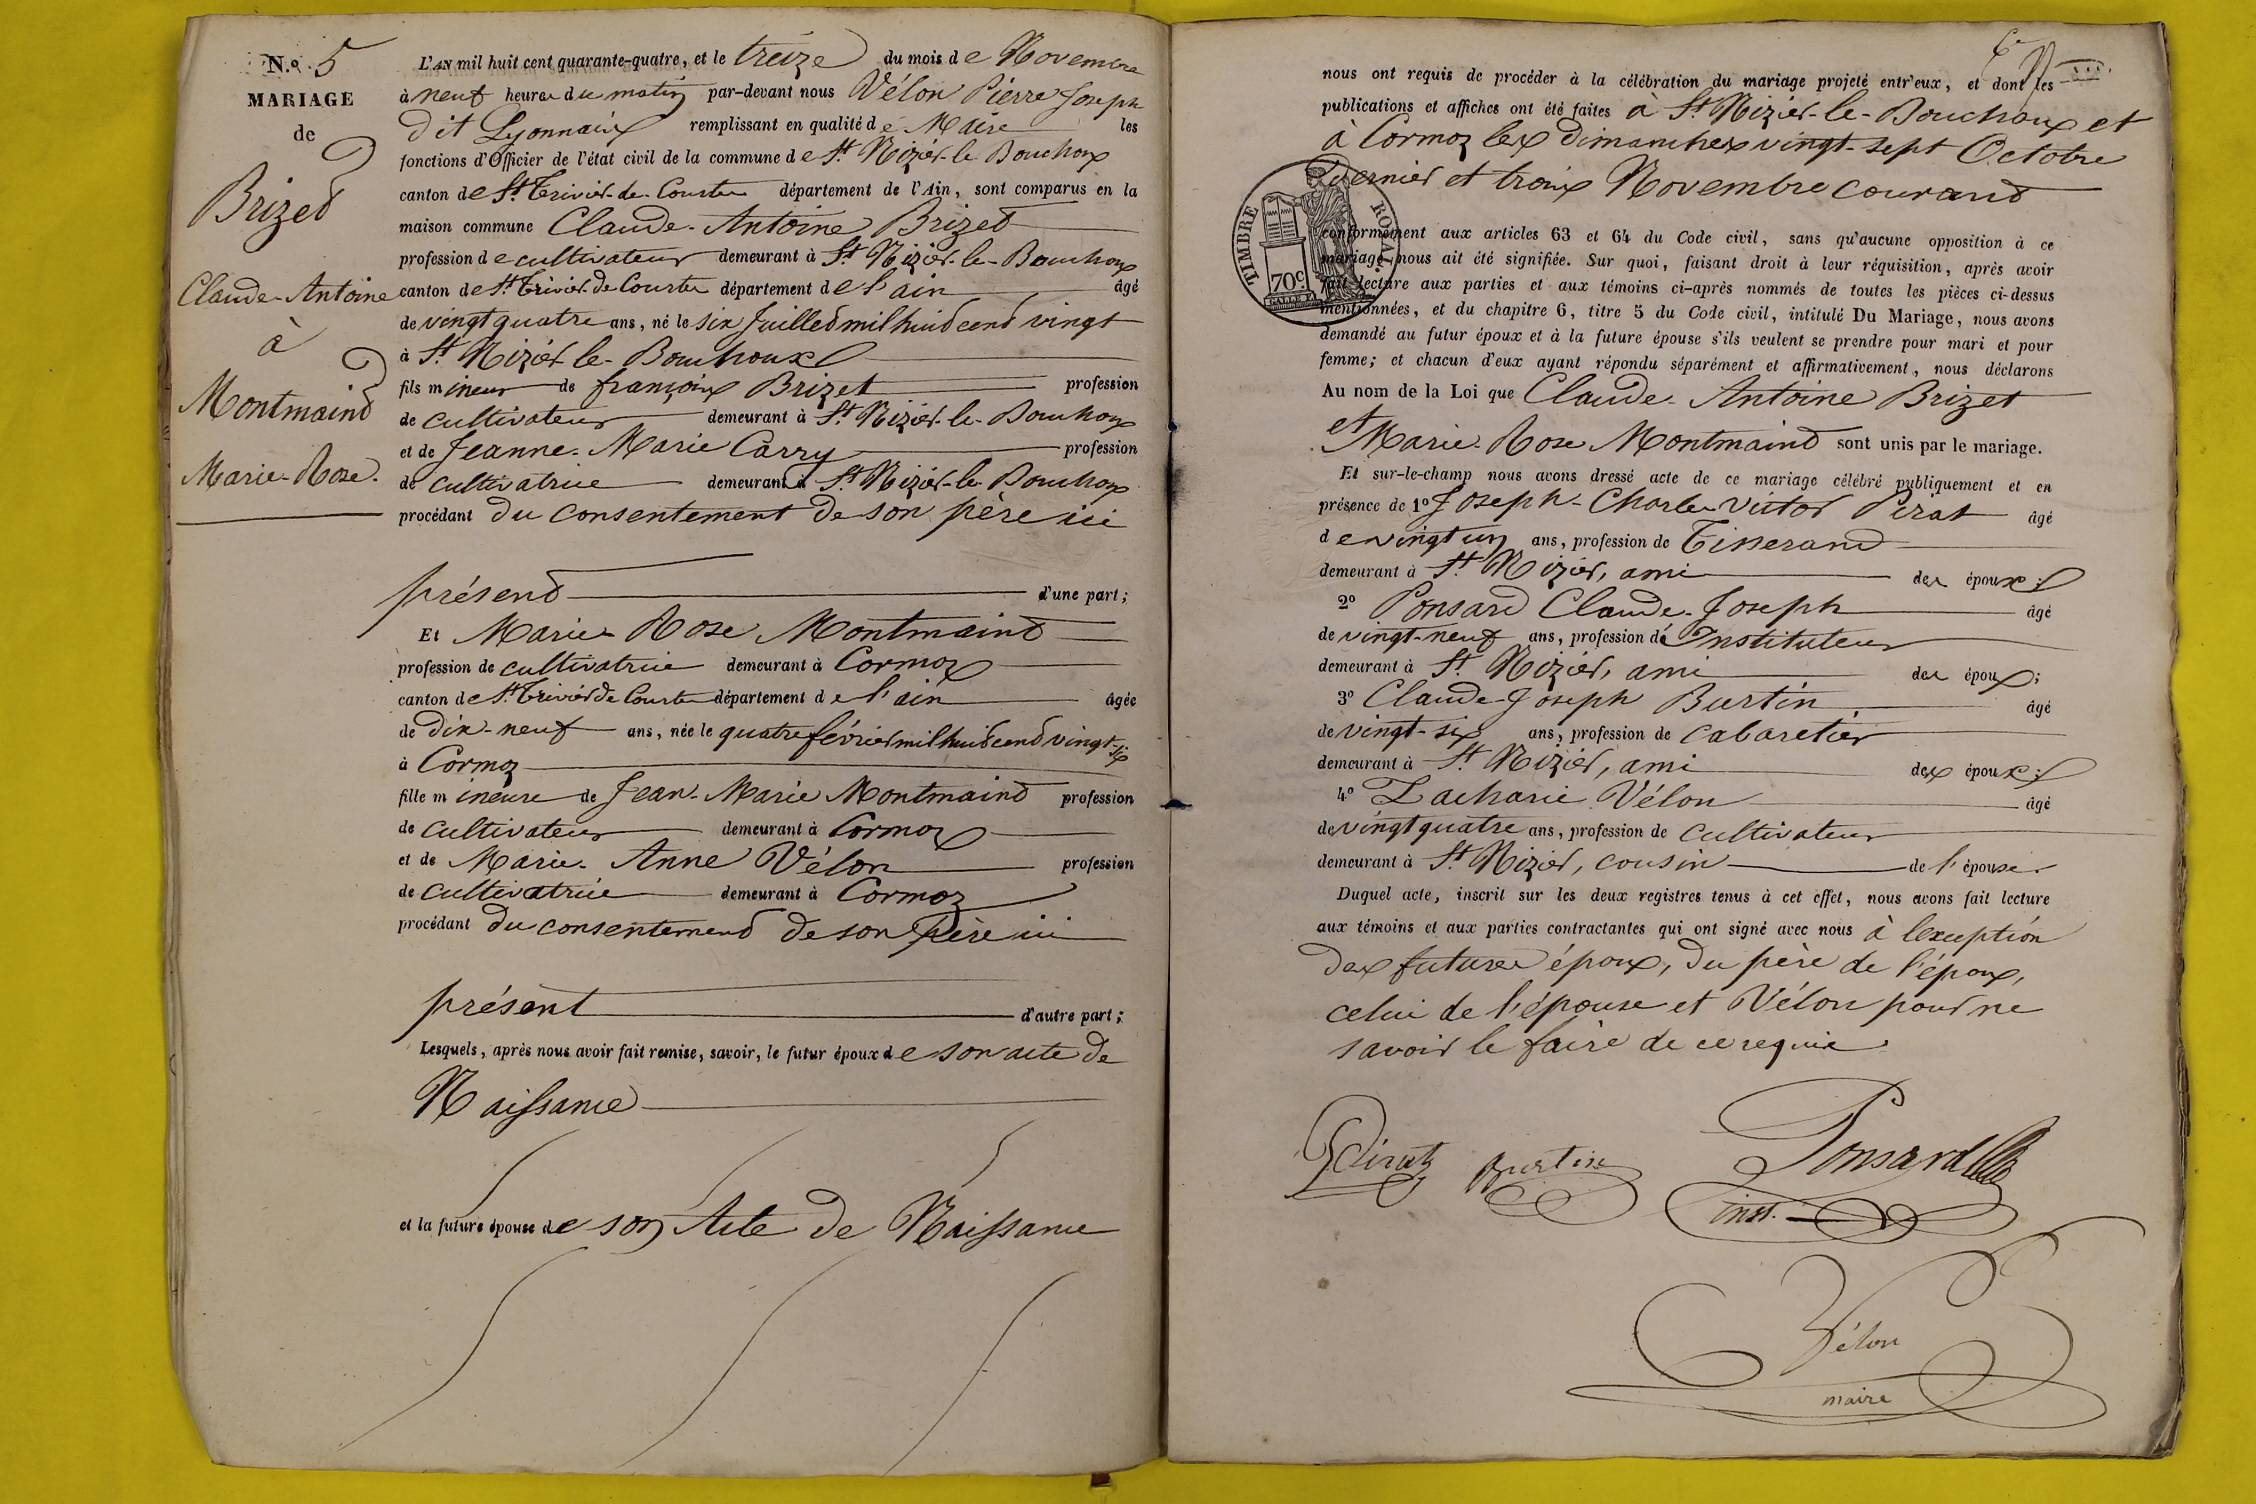 N.º 5
MARIAGE
de
Brizet
Claude-Antoine
à
Montmaint
Marie-Rose.
L'AN mil huit cent quarante-quatre, et le treize du mois de Novembre
à neuf heures du matin par-devant nous Vélon Pierre Joseph
dit Lyonnaix remplissant en qualité de Maire les
fonctions d'Officier de l'état civil de la commune de St Nizier-le-Bouchoux
canton de St Trivier-de-Courtes département de l'Ain, sont comparus en la
maison commune Claude-Antoine Brizet
profession de cultivateur demeurant à St Nizier-le-Bouchoux
canton de St Trivier de Courtes département de l'ain âgé
de vingt quatre ans, né le six Juillet mil huit cent vingt
à St Nizier-le-Bouchoux
fils mineur de françois Brizet profession
de cultivateur demeurant à St Nizier-le-Bouchoux
et de Jeanne-Marie Carry profession
de cultivatrice demeurant à St Nizier-le-Bouchoux
procédant du consentement de son père ici
présent d'une part;
Et Marie-Rose Montmaint
profession de cultivatrice demeurant à Cormoz
canton de St Trivier de Courtes département de l'ain âgée
de dix-neuf ans, née le quatre février mil huit cent vingt-six
à Cormoz
fille mineure de Jean-Marie Montmaint profession
de cultivateur demeurant à Cormoz
et de Marie-Anne Vélon profession
de cultivatrice demeurant à Cormoz
procédant du consentement de son père ici
présent d'autre part;
Lesquels, après nous avoir fait remise, savoir, le futur époux de son acte de
Naissance
et la future épouse de son Acte de Naissance
nous ont requis de procéder à la célébration du mariage projeté entr'eux, et dont les
publications et affiches ont été faites à St Nizier-le-Bouchoux et
à Cormoz les dimanches vingt-sept Octobre
dernier et troix Novembre courant
TIMBRE ROYAL.
70c
conformément aux articles 63 et 64 du Code civil, sans qu'aucune opposition à ce
mariage nous ait été signifiée. Sur quoi, faisant droit à leur réquisition, après avoir
fait lecture aux parties et aux témoins ci-après nommés de toutes les pièces ci-dessus
mentionnées, et du chapitre 6, titre 5 du Code civil, intitulé Du Mariage, nous avons
demandé au futur époux et à la future épouse s'ils veulent se prendre pour mari et pour
femme; et chacun d'eux ayant répondu séparément et affirmativement, nous déclarons
Au nom de la Loi que Claude-Antoine Brizet
et Marie-Rose Montmaint sont unis par le mariage.
Et sur-le-champ nous avons dressé acte de ce mariage célébré publiquement et en
présence de 1º Joseph-Charles Victor Pirat âgé
de vingt un ans, profession de Tisserand
demeurant à St Nizier, ami des époux;
2º Ponsard Claude-Joseph âgé
de vingt-neuf ans, profession d'Instituteur
demeurant à St Nizier, ami des époux;
3º Claude-Joseph Burtin âgé
de vingt-six ans, profession de cabaretier
demeurant à St Nizier, ami des époux;
4º Zacharie Vélon âgé
de vingt quatre ans, profession de cultivateur
demeurant à St Nizier, cousin de l'épouse.
Duquel acte, inscrit sur les deux registres tenus à cet effet, nous avons fait lecture
aux témoins et aux parties contractantes qui ont signé avec nous à l'exception
des futurs époux, du père de l'époux,
celui de l'épouse et Vélon pour ne
savoir le faire de ce requis.
Pirat Burtin Ponsard
inst.
Vélon
maire